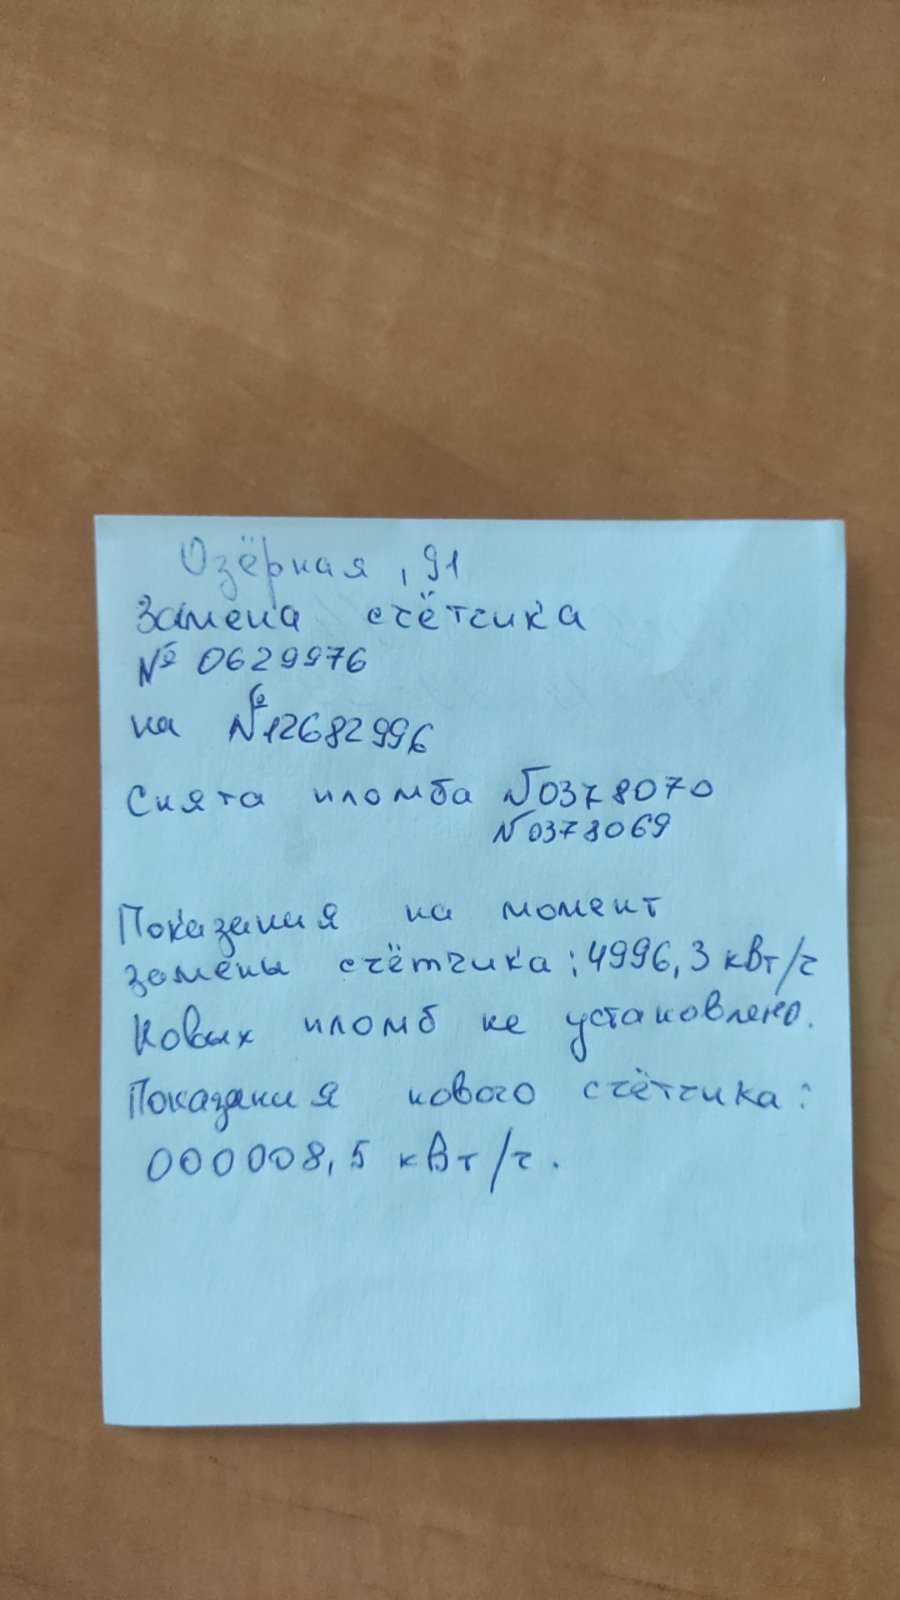 Озёрная, 91
Замена счётчика
№ 0629976
на №12682996
Снята пломба №0378070
№0378069
Показания на момент
замены счётчика: 4996,3 кВт/ч
Новых пломб не установлено.
Показания нового счётчика:
000008,5 кВт/ч.